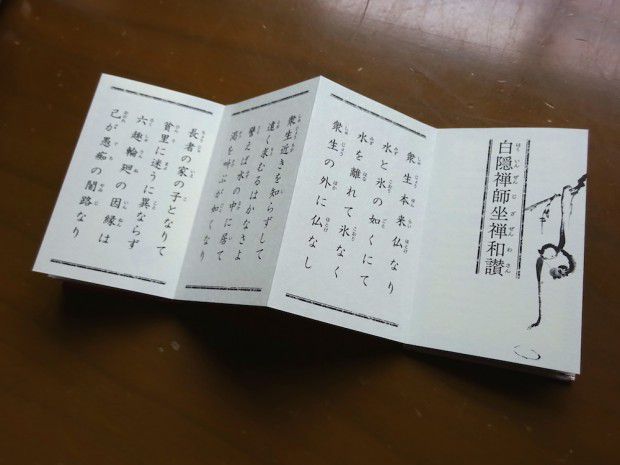 白隠禅師坐禅和讃
衆生本来仏なり
水と氷の如くにて
水を離れて氷なく
衆生の外に仏なし
衆生近きを知らずして
遠く求むるはかなさよ
譬えば水の中に居て
渇を叫ぶが如くなり
長者の家の子となりて
貧里に迷うに異ならず
六趣輪廻の因縁は
己が愚痴の闇路なり